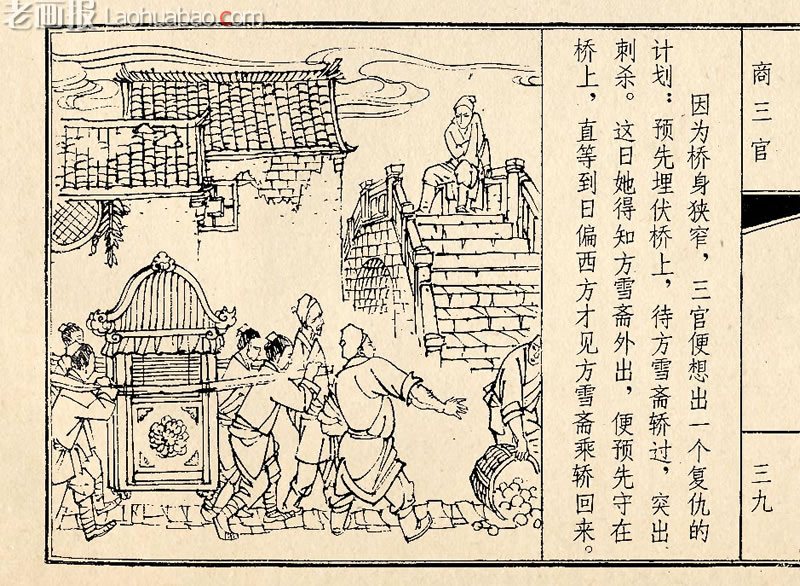 老画报
Laohuabao.com
因为桥身狭窄，三官便想出一个复仇的
计划：预先埋伏桥上，待方雪斋轿过，突出
刺杀。这日她得知方雪斋外出，便预先守在
桥上，直等到日偏西方才见方雪斋乘轿回来。
商三官
三九